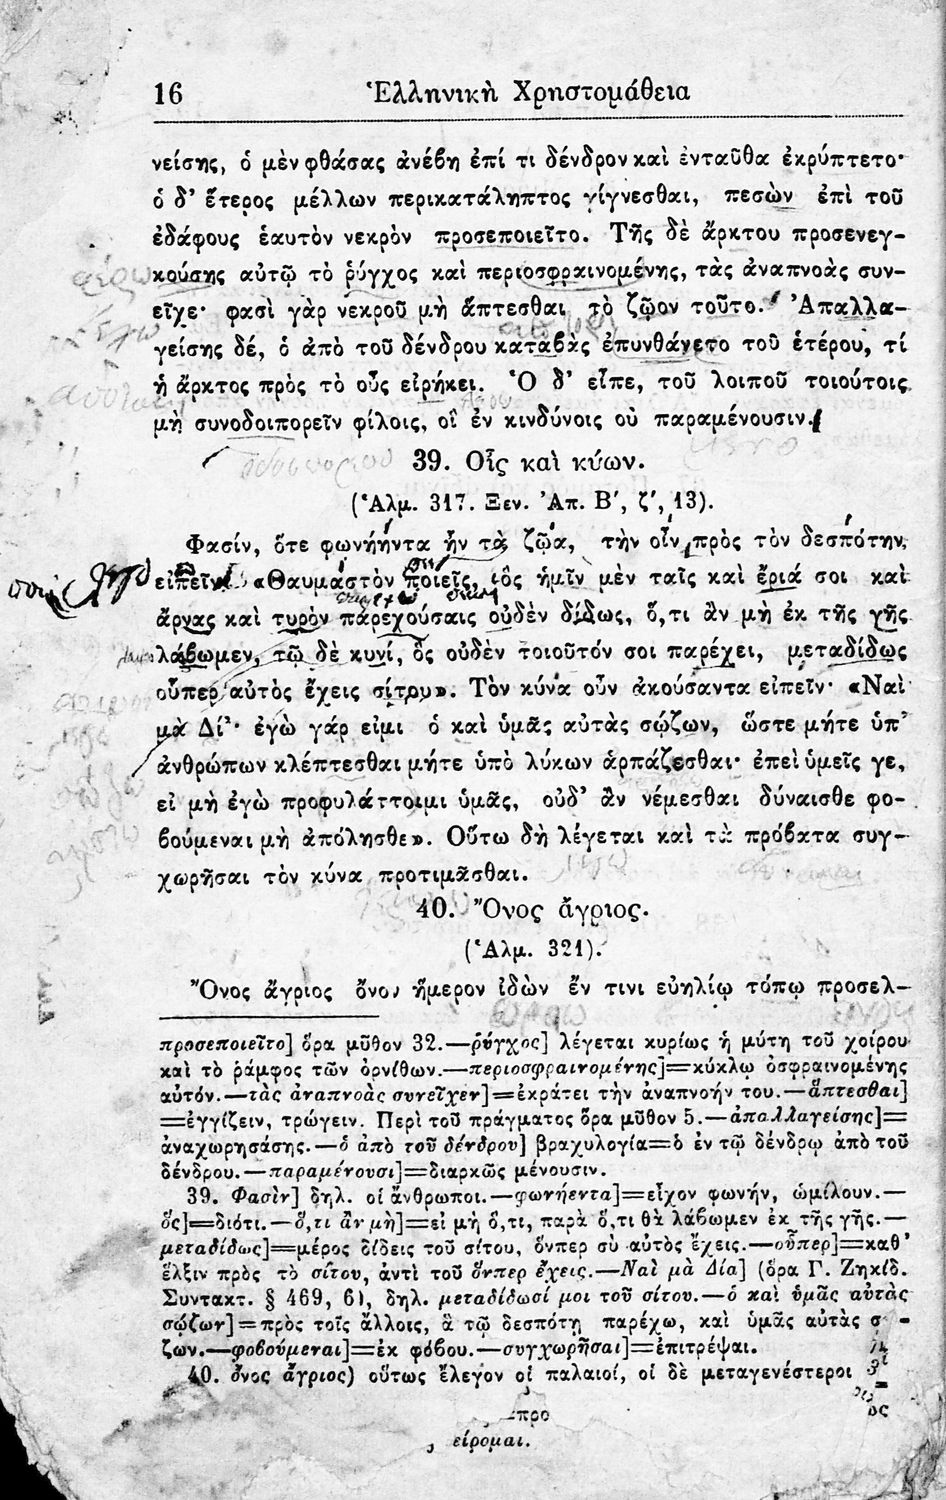 16 Ἑλληνικὴ Χρηστομάθεια
νείσης, ὁ μὲν φθάσας ἀνέβη ἐπί τι δένδρον καὶ ἐνταῦθα ἐκρύπτετο·
ὁ δ’ ἕτερος μέλλων περικατάληπτος γίγνεσθαι, πεσὼν ἐπὶ τοῦ
ἐδάφους ἑαυτὸν νεκρὸν προσεποιεῖτο. Τῆς δὲ ἄρκτου προσενεγ-
κούσης αὐτῷ τὸ ῥύγχος καὶ περιοσφραινομένης, τὰς ἀναπνοὰς συν-
εῖχε· φασὶ γὰρ νεκροῦ μὴ ἅπτεσθαι τὸ ζῷον τοῦτο. Ἀπαλλα-
γείσης δέ, ὁ ἀπὸ τοῦ δένδρου καταβὰς ἐπυνθάνετο τοῦ ἑτέρου, τί
ἡ ἄρκτος πρὸς τὸ οὖς εἰρήκει. Ὁ δ’ εἶπε, τοῦ λοιποῦ τοιούτοις
μὴ συνοδοιπορεῖν φίλοις, οἳ ἐν κινδύνοις οὐ παραμένουσιν.
39. Οἶς καὶ κύων.
(Ἁλμ. 317. Ξεν. Ἀπ. Β′, ζ′, 13).
Φασίν, ὅτε φωνήεντα ἦν τὰ ζῷα, τὴν οἶν πρὸς τὸν δεσπότην
εἰπεῖν· «Θαυμαστὸν ποιεῖς, ὃς ἡμῖν μὲν ταῖς καὶ ἔριά σοι καὶ
ἄρνας καὶ τυρὸν παρεχούσαις οὐδὲν δίδως, ὅ,τι ἂν μὴ ἐκ τῆς γῆς
λάβωμεν, τῷ δὲ κυνί, ὃς οὐδὲν τοιοῦτόν σοι παρέχει, μεταδίδως
οὗπερ αὐτὸς ἔχεις σίτου». Τὸν κύνα οὖν ἀκούσαντα εἰπεῖν· «Ναὶ
μὰ Δί’· ἐγὼ γάρ εἰμι ὁ καὶ ὑμᾶς αὐτὰς σῴζων, ὥστε μήτε ὑπ’
ἀνθρώπων κλέπτεσθαι μήτε ὑπὸ λύκων ἁρπάζεσθαι· ἐπεὶ ὑμεῖς γε,
εἰ μὴ ἐγὼ προφυλάττοιμι ὑμᾶς, οὐδ’ ἂν νέμεσθαι δύναισθε φο-
βούμεναι μὴ ἀπόλησθε». Οὕτω δὴ λέγεται καὶ τὰ πρόβατα συγ-
χωρῆσαι τὸν κύνα προτιμᾶσθαι.
40. Ὄνος ἄγριος.
(Ἁλμ. 321).
Ὄνος ἄγριος ὄνον ἥμερον ἰδὼν ἔν τινι εὐηλίῳ τόπῳ προσελ-
προσεποιεῖτο] ὅρα μῦθον 32.—ῥύγχος] λέγεται κυρίως ἡ μύτη τοῦ χοίρου
καὶ τὸ ῥάμφος τῶν ὀρνίθων.—περιοσφραινομένης]=κύκλῳ ὀσφραινομένης
αὐτόν.—τὰς ἀναπνοὰς συνεῖχεν]=ἐκράτει τὴν ἀναπνοήν του.—ἅπτεσθαι]
=ἐγγίζειν, τρώγειν. Περὶ τοῦ πράγματος ὅρα μῦθον 5.—ἀπαλλαγείσης]=
ἀναχωρησάσης.—ὁ ἀπὸ τοῦ δένδρου] βραχυλογία=ὁ ἐν τῷ δένδρῳ ἀπὸ τοῦ
δένδρου.—παραμένουσι]=διαρκῶς μένουσιν.
39. Φασὶν] δηλ. οἱ ἄνθρωποι.—φωνήεντα]=εἶχον φωνήν, ὡμίλουν.—
ὅς]=διότι.—ὅ,τι ἂν μὴ]=εἰ μὴ ὅ,τι, παρὰ ὅ,τι θὰ λάβωμεν ἐκ τῆς γῆς.—
μεταδίδως]=μέρος δίδεις τοῦ σίτου, ὅνπερ σὺ αὐτὸς ἔχεις.—οὗπερ]=καθ’
ἕλξιν πρὸς τὸ σίτου, ἀντὶ τοῦ ὅνπερ ἔχεις.—Ναὶ μὰ Δία] (ὅρα Γ. Ζηκίδ.
Συντακτ. § 469, 6), δηλ. μεταδίδωσί μοι τοῦ σίτου.—ὁ καὶ ὑμᾶς αὐτὰς
σῴζων]=πρὸς τοῖς ἄλλοις, ἃ τῷ δεσπότῃ παρέχω, καὶ ὑμᾶς αὐτὰς σ -
ζων.—φοβούμεναι]=ἐκ φόβου.—συγχωρῆσαι]=ἐπιτρέψαι.
40. ὄνος ἄγριος) οὕτως ἔλεγον οἱ παλαιοί, οἱ δὲ μεταγενέστεροι
προ
ος
είρομαι.